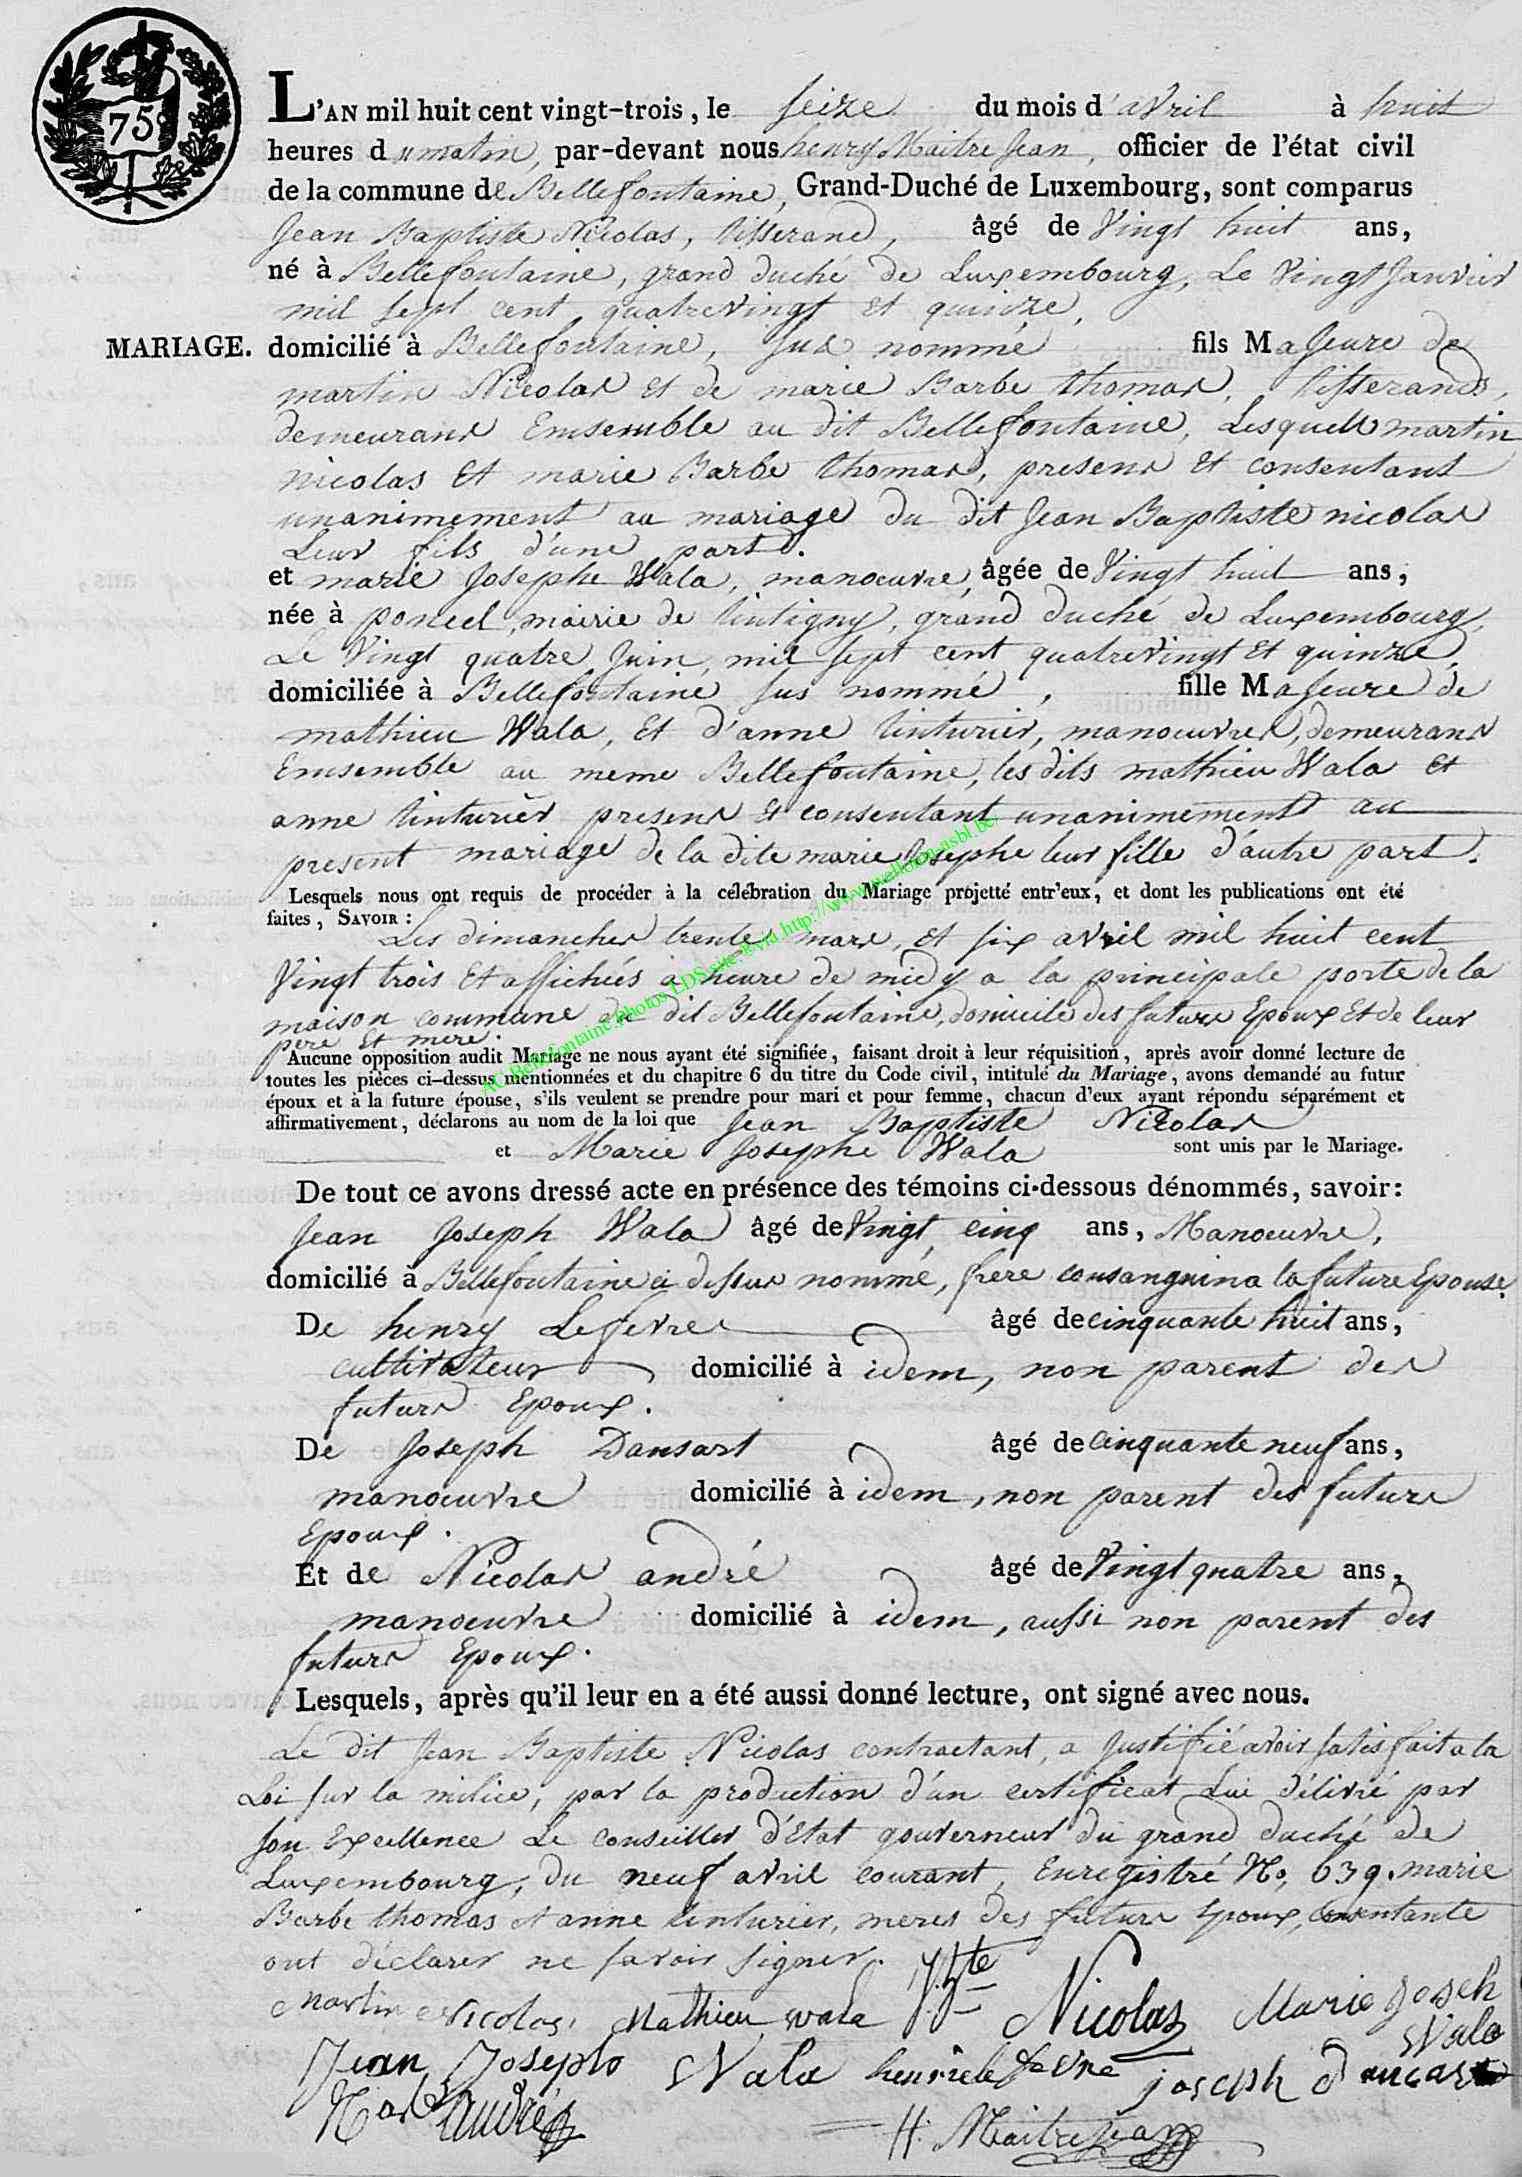 75
L'AN mil huit cent vingt-trois, le seize du mois d'avril à huit
heures du matin, par-devant nous henry Maitre Jean, officier de l'état civil
de la commune de Bellefontaine, Grand-Duché de Luxembourg, sont comparus
Jean Baptiste Nicolas, tisserand, âgé de Vingt huit ans,
né à Bellefontaine, grand duché de Luxembourg, Le Vingt Janvier
mil sept cent quatrevingt et quinze,
MARIAGE. domicilié à Bellefontaine, sus nommé fils Majeure de
martin Nicolas et de marie Barbe thomas, tisserands,
demeurans Emsemble au dit Bellefontaine, Lesquels martin
nicolas Et marie Barbe thomas, presens et consentant
unanimement au mariage du dit Jean Baptiste nicolas
Leur fils d'une part.
et marie Josephe Wala, manoeuvre, âgée de Vingt huit ans,
née à poncel, mairie de tintigny, grand duché de Luxembourg,
Le Vingt quatre Juin, mil sept cent quatrevingt Et quinze,
domiciliée à Bellefontaine sus nommé, fille Majeure de
mathieu Wala, Et d'anne tinturier, manoeuvres, demeurans
Emsemble au meme Bellefontaine, les dits mathieu Wala et
anne tinturier presens & consentant unanimement au
present mariage de la dite marie Josephe leur fille d'autre part.
Lesquels nous ont requis de procéder à la célébration du Mariage projetté entr'eux, et dont les publications ont été
faites, SAVOIR :
Les dimanches trente mars, et six avril mil huit cent
Vingt trois Et affichées a heure de midy a la principale porte de la
maison commune du dit Bellefontaine, domicile des futurs Epoux Et de leur
pere Et mere.
Aucune opposition audit Mariage ne nous ayant été signifiée, faisant droit à leur réquisition, après avoir donné lecture de
toutes les pièces ci-dessus mentionnées et du chapitre 6 du titre du Code civil, intitulé du Mariage, avons demandé au futur
époux et à la future épouse, s'ils veulent se prendre pour mari et pour femme, chacun d'eux ayant répondu séparément et
affirmativement, déclarons au nom de la loi que Jean Baptiste Nicolas
et Marie Josephe Wala sont unis par le Mariage.
De tout ce avons dressé acte en présence des témoins ci-dessous dénommés, savoir:
Jean Joseph Wala âgé de Vingt cinq ans, Manoeuvre,
domicilié à Bellefontaine ci dessus nommé, frere consanguin a la future Epouse.
De henry Lefevre âgé de cinquante huit ans,
cultivateur domicilié à idem, non parent des
futurs Epoux.
De Joseph Dansart âgé de cinquante neuf ans,
manoeuvre domicilié à idem, non parent des futurs
Epoux.
Et de Nicolas andré âgé de Vingt quatre ans,
manoeuvre domicilié à idem, aussi non parent des
futurs Epoux.
Lesquels, après qu'il leur en a été aussi donné lecture, ont signé avec nous.
Le dit Jean Baptiste Nicolas contractant, a Justifié avoir satisfait a la
Loi sur la milice, par la production d'un certificat Lui délivré par
son Excellence Le conseiller d'Etat gouverneur du grand duché de
Luxembourg, du neuf avril courant, Enregistré No, 639. marie
Barbe thomas et anne tinturier, meres des futurs Epoux, consentante
ont déclarer ne savoir signer.
Martin Nicolas, Mathieu wala J. Bte Nicolas Marie Joseh
Wala
Jean Joseph Wala henri le fevre joseph dansart
Nas andré
H. Maitrejean
AC Bellefontaine, Photos LDS, site & via http://www.wellorin-asbl.be